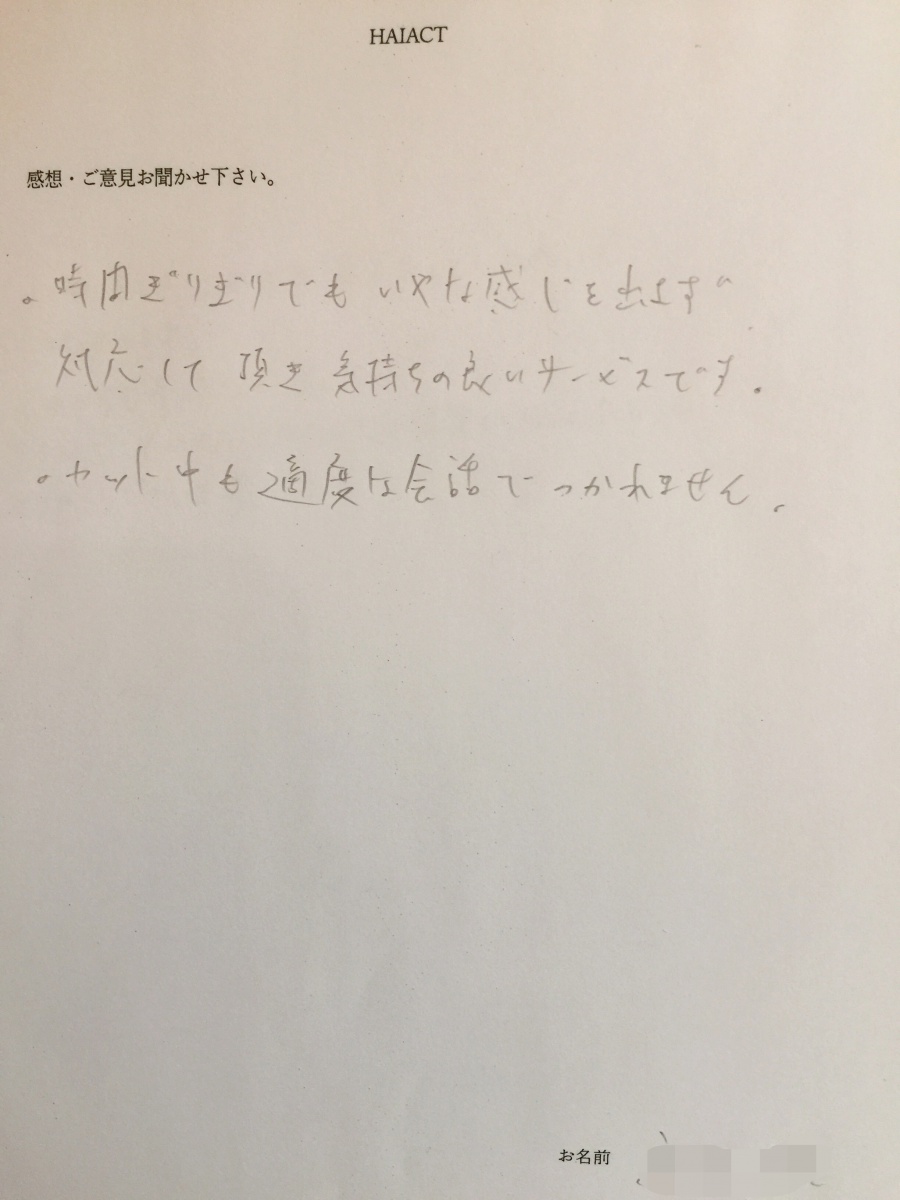 HAIACT
感想・ご意見お聞かせ下さい。
。時間ぎりぎりでもいやな感じを出さず
対応して頂き気持ちの良いサービスです。
。カット中も適度な会話でつかれません。
お名前